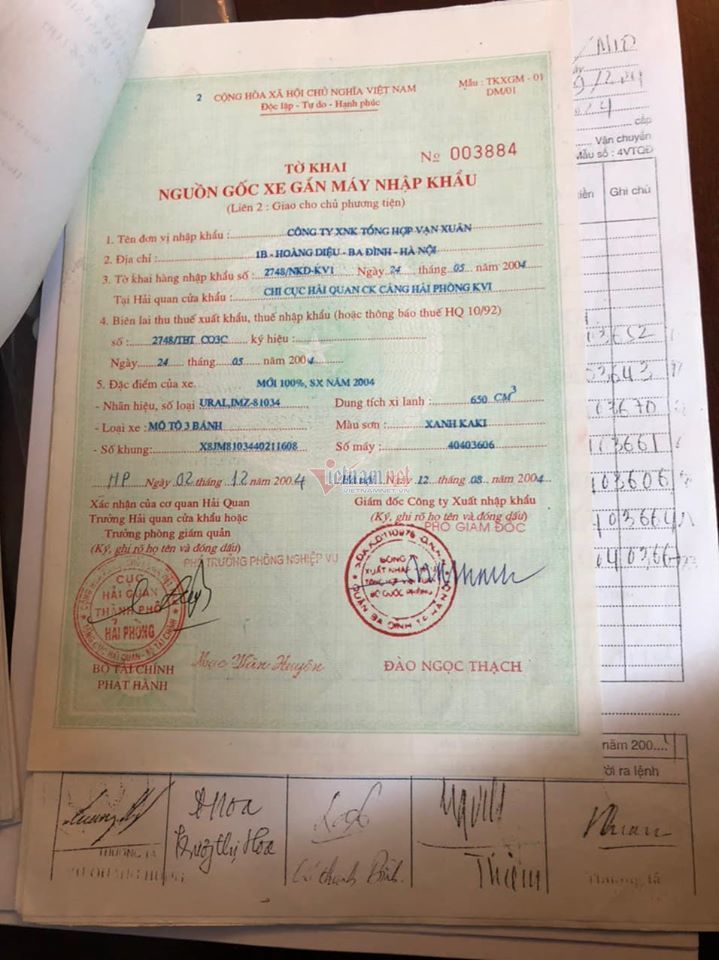 2 CỘNG HÒA XÃ HỘI CHỦ NGHĨA VIỆT NAM
Độc lập - Tự do - Hạnh phúc
Mẫu : TKXGM - 01
DM/01
Nº 003884
TỜ KHAI
NGUỒN GỐC XE GẮN MÁY NHẬP KHẨU
(Liên 2 : Giao cho chủ phương tiện)
1. Tên đơn vị nhập khẩu : CÔNG TY XNK TỔNG HỢP VẠN XUÂN
2. Địa chỉ : 1B - HOÀNG DIỆU - BA ĐÌNH - HÀ NỘI
3. Tờ khai hàng nhập khẩu số : 2748/NKD-KV1 Ngày 24 tháng 05 năm 2004
Tại Hải quan cửa khẩu : CHI CỤC HẢI QUAN CK CẢNG HẢI PHÒNG KVI
4. Biên lai thu thuế xuất khẩu, thuế nhập khẩu (hoặc thông báo thuế HQ 10/92)
số : 2748/TBT CO3C ký hiệu :
Ngày 24 tháng 05 năm 2004
5. Đặc điểm của xe. MỚI 100%, SX NĂM 2004
- Nhãn hiệu, số loại URAL,IMZ-81034 Dung tích xi lanh : 650 CM3
- Loại xe : MÔ TÔ 3 BÁNH Màu sơn : XANH KAKI
- Số khung: X8JM8103440211608 Số máy : 40403606
HP Ngày 02 tháng 12 năm 2004 Hà Nội Ngày 12 tháng 08 năm 2004
Vietnam.net
VIETNAMNET.VN
Xác nhận của cơ quan Hải Quan
Trưởng Hải quan cửa khẩu hoặc
Trưởng phòng giám quản
(Ký, ghi rõ họ tên và đóng dấu)
Giám đốc Công ty Xuất nhập khẩu
(Ký, ghi rõ họ tên và đóng dấu)
PHÓ GIÁM ĐỐC
PHÓ TRƯỞNG PHÒNG NGHIỆP VỤ
CỤC
HẢI QUAN
THÀNH PHỐ
HẢI PHÒNG
BỘ TÀI CHÍNH
PHÁT HÀNH
ĐÀO NGỌC THẠCH
cấp
Vận chuyển
Mẫu số : 4VTQĐ
Ghi chú
03643
03670
03661
03606
năm 200....
ời ra lệnh
Thiêm